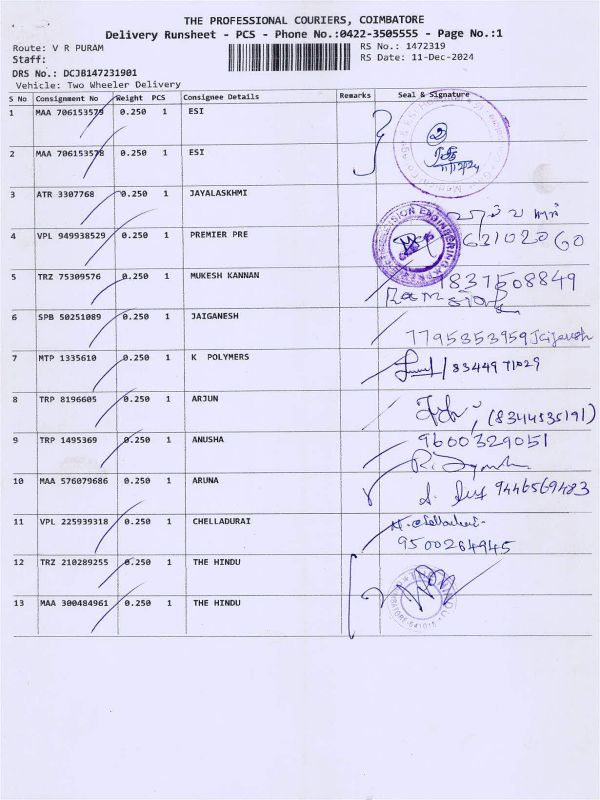 THE PROFESSIONAL COURIERS, COIMBATORE
Delivery Runsheet - PCS - Phone No.:0422-3505555 - Page No.:1
Route: V R PURAM
RS No.: 1472319
Staff:
RS Date: 11-Dec-2024
DRS No.: DCJB147231901
Vehicle: Two Wheeler Delivery
S No Consignment No Weight PCS Consignee Details Remarks Seal & Signature
1 MAA 706153579 0.250 1 ESI
2 MAA 706153578 0.250 1 ESI
11/12/24
3 ATR 3307768 0.250 1 JAYALASKHMI
4 VPL 949938529 0.250 1 PREMIER PRE
5 TRZ 75309576 0.250 1 MUKESH KANNAN
6 SPB 50251089 0.250 1 JAIGANESH
7795353959
7 MTP 1335610 0.250 1 K POLYMERS
83449 71029
8 TRP 8196605 0.250 1 ARJUN
(8344535191)
9 TRP 1495369 0.250 1 ANUSHA
9600329051
10 MAA 576079686 0.250 1 ARUNA
9446569483
11 VPL 225939318 0.250 1 CHELLADURAI
9500264945
12 TRZ 210289255 0.250 1 THE HINDU
13 MAA 300484961 0.250 1 THE HINDU